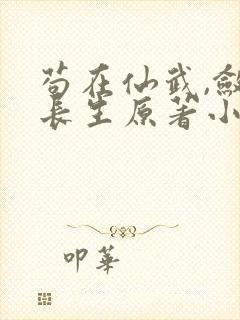 苟在仙武,敛
长生原著小
叩華